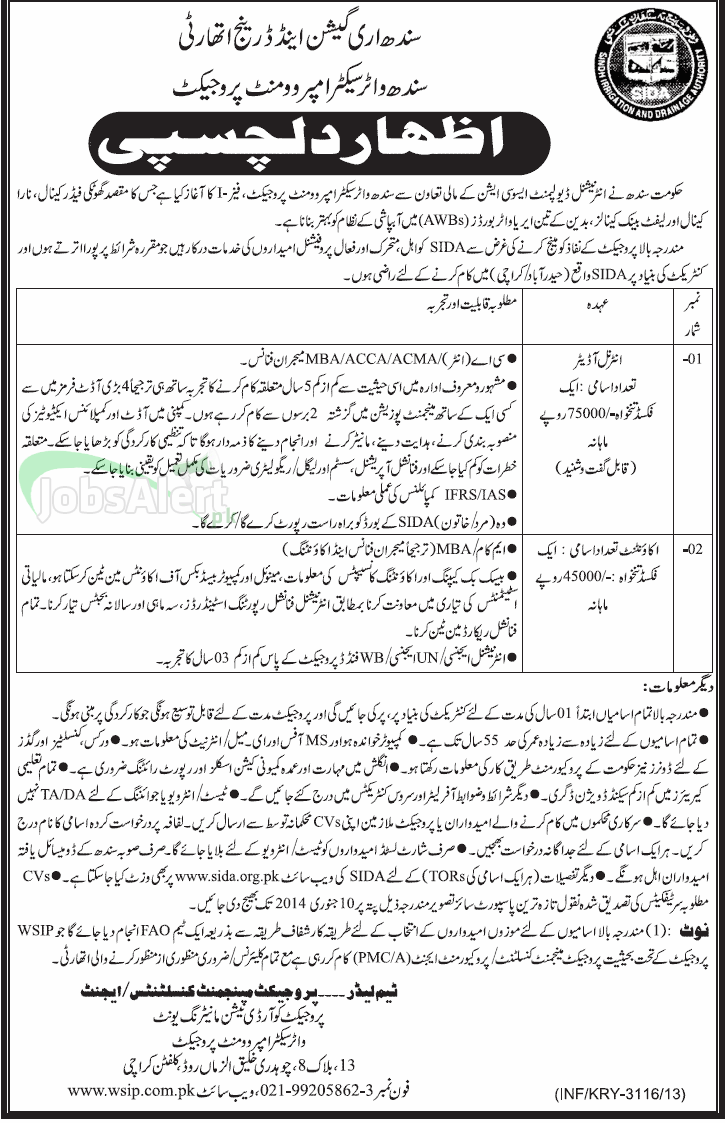 سندھ اری گیشن اینڈ ڈرینج اتھارٹی
سندھ واٹر سیکٹر امپروومنٹ پروجیکٹ
SIDA
SINDH IRRIGATION AND DRAINAGE AUTHORITY
اظہار دلچسپی
حکومت سندھ نے انٹرنیشنل ڈیولپمنٹ ایسوسی ایشن کے مالی تعاون سے سندھ واٹر سیکٹر امپروومنٹ پروجیکٹ، فیز-I کا آغاز کیا ہے جس کا مقصد گھوٹکی فیڈر کینال، نارا
کینال اور لیفٹ بینک کینالز، بدین کے تین ایریا واٹر بورڈز (AWBs) میں آبپاشی کے نظام کو بہتر بنانا ہے۔
مندرجہ بالا پروجیکٹ کے نفاذ کو مینج کرنے کی غرض سے SIDA کو اہل، متحرک اور فعال پروفیشنل امیدواروں کی خدمات درکار ہیں جو مقررہ شرائط پر پورا اترتے ہوں اور
کنٹریکٹ کی بنیاد پر SIDA واقع (حیدرآباد/کراچی) میں کام کرنے کے لئے راضی ہوں۔
نمبر شمار
عہدہ
مطلوبہ قابلیت اور تجربہ
01-
انٹرنل آڈیٹر
تعداد اسامی : ایک
فکسڈ تنخواہ -/75000 روپے
ماہانہ
(قابل گفت و شنید)
● سی اے (انٹر)/MBA/ACCA/ACMA میجر ان فنانس۔
● مشہور و معروف ادارہ میں اسی حیثیت سے کم از کم 5 سال متعلقہ کام کرنے کا تجربہ ساتھ ہی ترجیحاً 4 بڑی آڈٹ فرمز میں سے
کسی ایک کے ساتھ مینجمنٹ پوزیشن میں گزشتہ 2 برسوں سے کام کررہے ہوں۔ کمپنی میں آڈٹ اور کمپلائنس ایکٹیوٹیز کی
منصوبہ بندی کرنے، ہدایت دینے، مانیٹر کرنے اور انجام دینے کا ذمہ دار ہوگا تاکہ تنظیمی کارکردگی کو بڑھایا جاسکے۔ متعلقہ
خطرات کو کم کیا جاسکے اور فنانشل آپریشنل، سسٹم اور لیگل/ریگولیٹری ضروریات کی مکمل تعمیل کو یقینی بنایا جاسکے۔
● IFRS/IAS کمپلائنس کی عملی معلومات۔
● وہ (مرد/خاتون) SIDA کے بورڈ کو براہ راست رپورٹ کرے گا/کرے گی۔
JobsAlert.pk
02-
اکاؤنٹنٹ تعداد اسامی : ایک
فکسڈ تنخواہ :-/45000 روپے
ماہانہ
● ایم کام/MBA (ترجیحاً میجر ان فنانس اینڈ اکاؤنٹنگ)
● بیسک بک کیپنگ اور اکاؤنٹنگ کانسیپٹس کی معلومات، مینوئل اور کمپیوٹر بیسڈ بکس آف اکاؤنٹس مین ٹین کرسکتا ہو، مالیاتی
اسٹیٹمنٹس کی تیاری میں معاونت کرنا بمطابق انٹرنیشنل فنانشل رپورٹنگ اسٹینڈرڈز، سہ ماہی اور سالانہ بجٹس تیار کرنا۔ تمام
فنانشل ریکارڈ مین ٹین کرنا۔
● انٹرنیشنل ایجنسی/UN ایجنسی/WB فنڈڈ پروجیکٹ کے پاس کم از کم 03 سال کا تجربہ۔
دیگر معلومات:
● مندرجہ بالا تمام اسامیاں ابتداً 01 سال کی مدت کے لئے کنٹریکٹ کی بنیاد پر، پر کی جائیں گی اور پروجیکٹ مدت کے لئے قابل توسیع ہونگی جو کارکردگی پر مبنی ہونگی۔
● تمام اسامیوں کے لئے زیادہ سے زیادہ عمر کی حد 55 سال تک ہے۔ ● کمپیوٹر خواندہ ہو اور MS آفس اور ای۔میل/انٹرنیٹ کی معلومات ہو۔ ● ورکس، کنسلٹیز اور گڈز
کے لئے ڈونرز نیز حکومت کے پروکیورمنٹ طریق کار کی معلومات رکھتا ہو۔ ● انگلش میں مہارت اور عمدہ کمیونی کیشن اسکلز اور رپورٹ رائٹنگ ضروری ہے۔ ● تمام تعلیمی
کیریئرز میں کم از کم سیکنڈ ڈویژن ڈگری۔ ● دیگر شرائط و ضوابط آفر لیٹر اور سروس کنٹریکٹس میں درج کئے جائیں گے۔ ● ٹیسٹ/انٹرویو یا جوائننگ کے لئے TA/DA نہیں
دیا جائے گا۔ ● سرکاری محکموں میں کام کرنے والے امیدواران یا پروجیکٹ ملازمین اپنی CVs محکمانہ توسط سے ارسال کریں۔ لفافہ پر درخواست کردہ اسامی کا نام درج
کریں۔ ہر ایک اسامی کے لئے جداگانہ درخواست بھیجیں۔ ● صرف شارٹ لسٹڈ امیدواروں کو ٹیسٹ/انٹرویو کے لئے بلایا جائے گا۔ صرف صوبہ سندھ کے ڈومیسائل یافتہ
امیدواران اہل ہونگے۔ ● دیگر تفصیلات (ہر ایک اسامی کی TORs) کے لئے SIDA کی ویب سائٹ www.sida.org.pk پر بھی وزٹ کیا جاسکتا ہے۔ ● CVs
مطلوبہ سرٹیفکیٹس کی تصدیق شدہ نقول تازہ ترین پاسپورٹ سائز تصویر مندرجہ ذیل پتہ پر 10 جنوری 2014 تک بھیج دی جائیں۔
نوٹ : (1) مندرجہ بالا اسامیوں کے لئے موزوں امیدواروں کے انتخاب کے لئے طریقہ کار شفاف طریقہ سے بذریعہ ایک ٹیم FAO انجام دیا جائے گا جو WSIP
پروجیکٹ کے تحت بحیثیت پروجیکٹ مینجمنٹ کنسلٹنٹ/پروکیورمنٹ ایجنٹ (PMC/A) کام کررہی ہے مع تمام کلیئرنس/ضروری منظوری از منظور کرنے والی اتھارٹی۔
ٹیم لیڈر ---- پروجیکٹ مینجمنٹ کنسلٹنٹس/ایجنٹ
پروجیکٹ کوآرڈی نیشن مانیٹرنگ یونٹ
واٹر سیکٹر امپروومنٹ پروجیکٹ
13، بلاک 8، چوہدری خلیق الزماں روڈ، کلفٹن کراچی
فون نمبر 3-99205862-021، ویب سائٹ www.wsip.com.pk
(INF/KRY-3116/13)